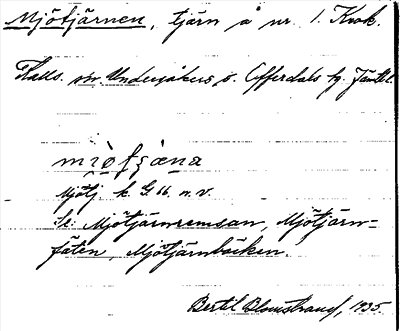 Mjötjärnen, tjärn å nr. 1. Krok.
Halls. sn. Undersåkers o. Offerdals tg. Jämtl.
Mjötj k. G. 16. n. v.
Se. Mjötjärnremsan, Mjötjärn-
fäten, Mjötjärnbäcken.
Bertil Blomstrand, 1935.